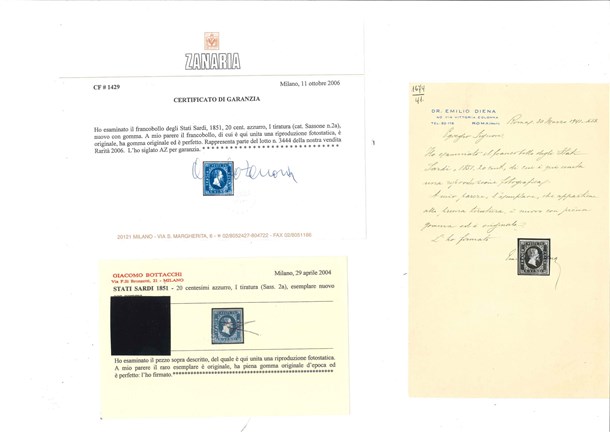 ZANARIA
CF # 1429
Milano, 11 ottobre 2006
CERTIFICATO DI GARANZIA
Ho esaminato il francobollo degli Stati Sardi, 1851, 20 cent. azzurro, I tiratura (cat. Sassone n.2a),
nuovo con gomma. A mio parere il francobollo, di cui è qui unita una riproduzione fotostatica, è
originale, ha gomma originale ed è perfetto. Rappresenta parte del lotto n. 3444 della nostra vendita
Rarità 2006. L'ho siglato AZ per garanzia.
20121 MILANO - VIA S. MARGHERITA, 6 -
GIACOMO BOTTACCHI
MILANO
Milano, 29 aprile 2004
STATI SARDI 1851 - 20 centesimi azzurro, I tiratura (Sass. 2a), esemplare nuovo
Ho esaminato il pezzo sopra descritto, del quale è qui unita una riproduzione fotostatica.
A mio parere il raro esemplare è originale, ha piena gomma originale d'epoca ed
è perfetto: l'ho firmato.
DR. EMILIO DIENA
VIA VITTORIA COLONNA
Ho esaminato il francobollo degli Stati
Sardi, 1851, 20 cent. di cui è qui unita
una riproduzione fotografica.
A mio parere, l'esemplare, che appartiene
alla prima tiratura, è nuovo con piena
gomma ed è originale.
L'ho firmato